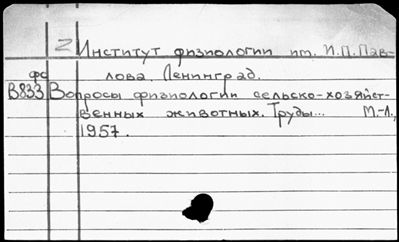 2 Институт физиологии им. И.П.Пав-
лова. Ленинград.
фс
В833 Вопросы физиологии сельско-хозяйст-
венных животных. Труды... М.-Л.,
1957.